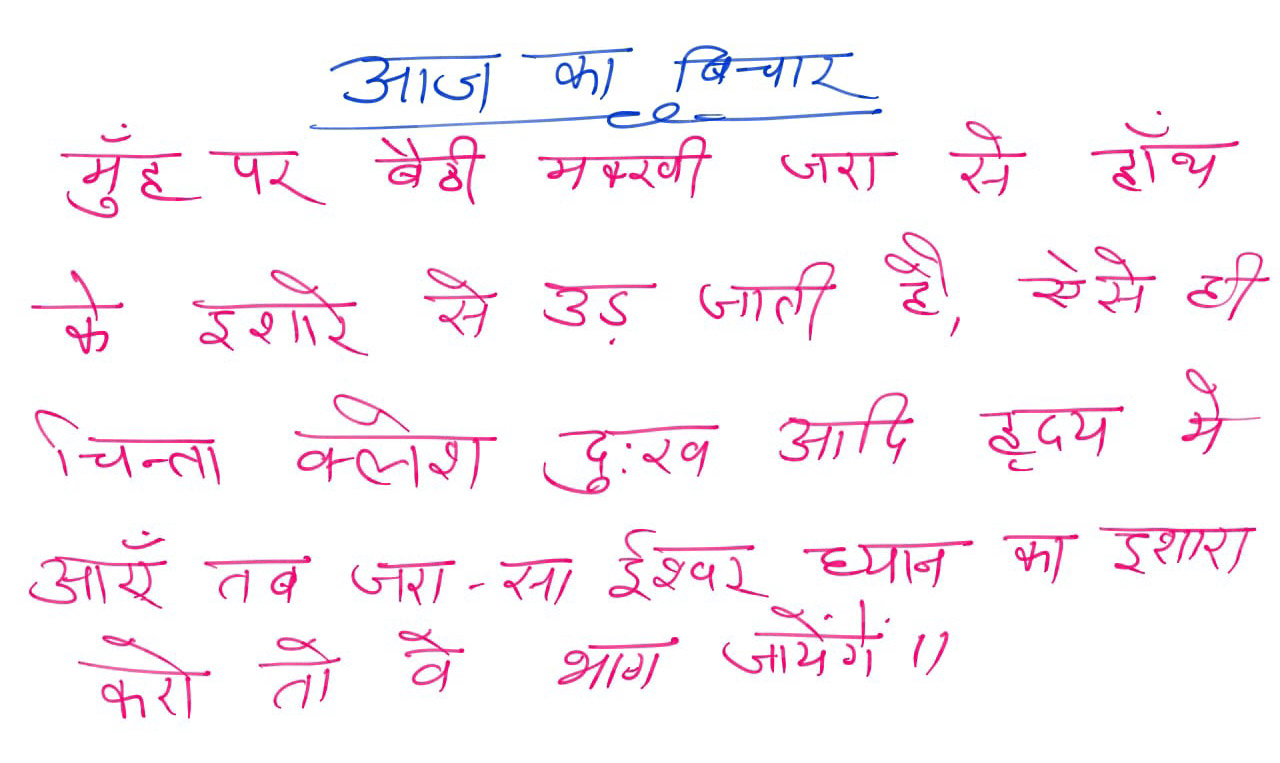 आज का बिचार
मुँह पर बैठी मक्खी जरा से हाँथ
के इशारे से उड़ जाती है, ऐसे ही
चिन्ता क्लेश दुःख आदि हृदय मे
आएँ तब जरा-सा ईश्वर ध्यान का इशारा
करो तो वे भाग जायेंगें।।